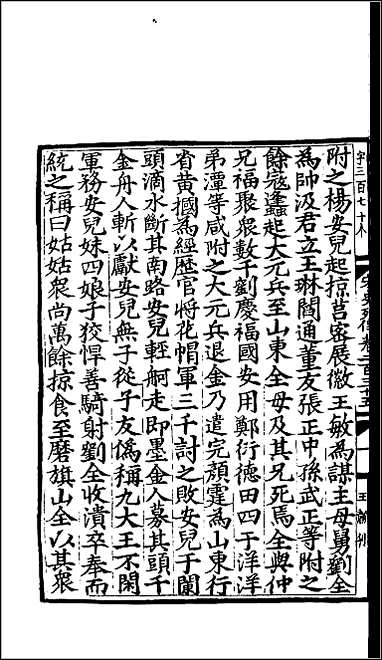 字三百七十
宋史列傳卷二百三十五
附之楊安兒起掠莒密展徽王敏為謀主母舅劉全
為帥汲君立王琳閻通董友張正中孫武正等附之
餘寇蠭起大元兵至山東全母及其兄死焉全與仲
兄福聚衆數千劉慶福國安用鄭衍德田四于洋洋
弟潭等咸附之大元兵退金乃遣完顏霆為山東行
省黃摑為經歷官將花帽軍三千討之敗安兒于闤
頭滴水斷其南路安兒輕舸走即墨金人募其頭千
金舟人斬以獻安兒無子從子友僞稱九大王不閑
軍務安兒妹四娘子狡悍善騎射劉全收潰卒奉而
統之稱曰姑姑衆尚萬餘掠食至磨旗山全以其衆